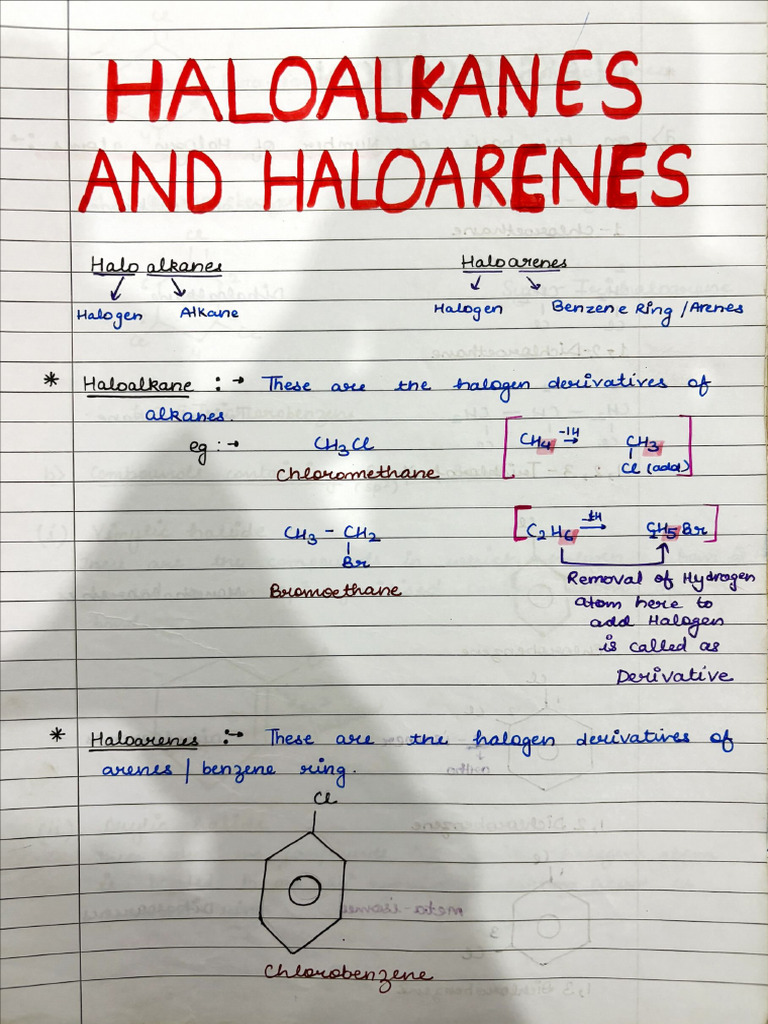 HALOALKANES
AND HALOARENES
Halo alkanes
Halogen Alkane
Haloarenes
Halogen Benzene Ring / Arenes
* Haloalkane :→ These are the halogen derivatives of
alkanes.
eg :→ CH3Cl
Chloromethane
CH4 -1H → CH3
Cl (add)
CH3 - CH2
Br
Bromoethane
C2H6 -1H → C2H5Br
Removal of Hydrogen
atom here to
add Halogen
is called as
Derivative
* Haloarenes :→ These are the halogen derivatives of
arenes / benzene ring.
Cl
Chlorobenzene